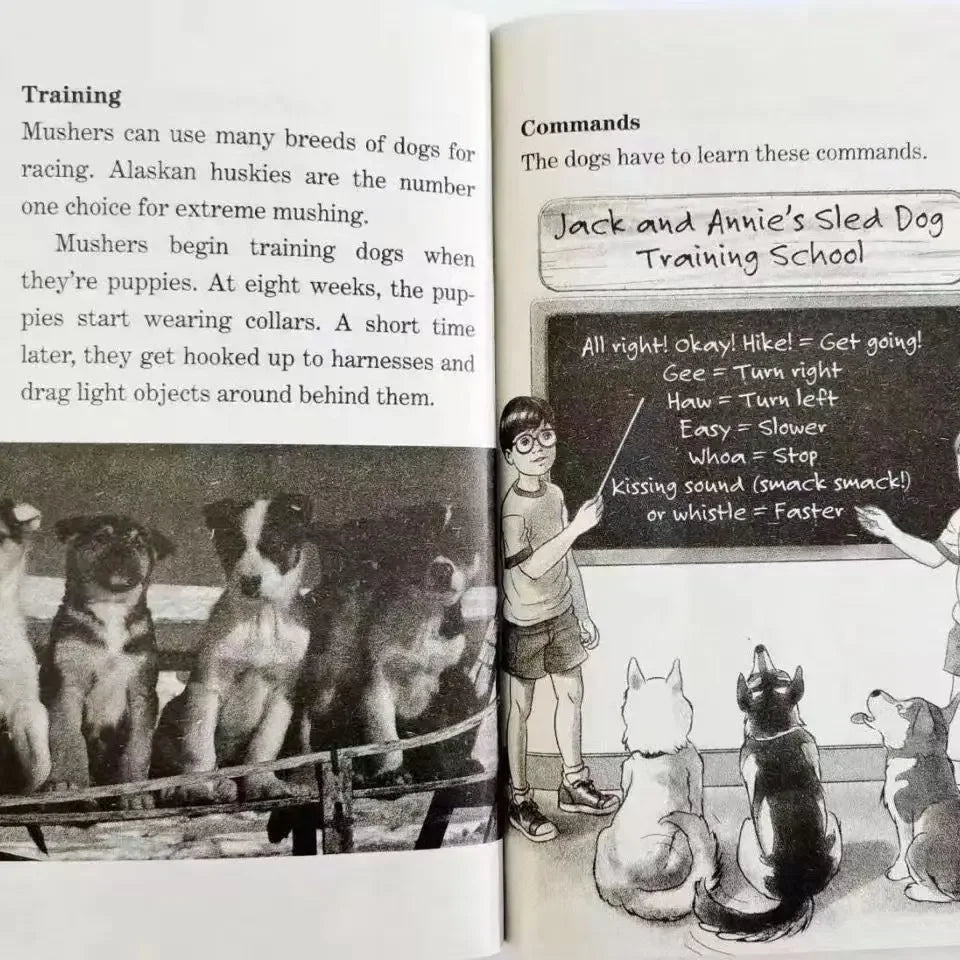 Training
Mushers can use many breeds of dogs for
racing. Alaskan huskies are the number
one choice for extreme mushing.
Mushers begin training dogs when
they're puppies. At eight weeks, the pup-
pies start wearing collars. A short time
later, they get hooked up to harnesses and
drag light objects around behind them.
Commands
The dogs have to learn these commands.
Jack and Annie's Sled Dog
Training School
All right! Okay! Hike! = Get going!
Gee = Turn right
Haw = Turn left
Easy = Slower
Whoa = Stop
Kissing sound (smack smack!)
or whistle = Faster